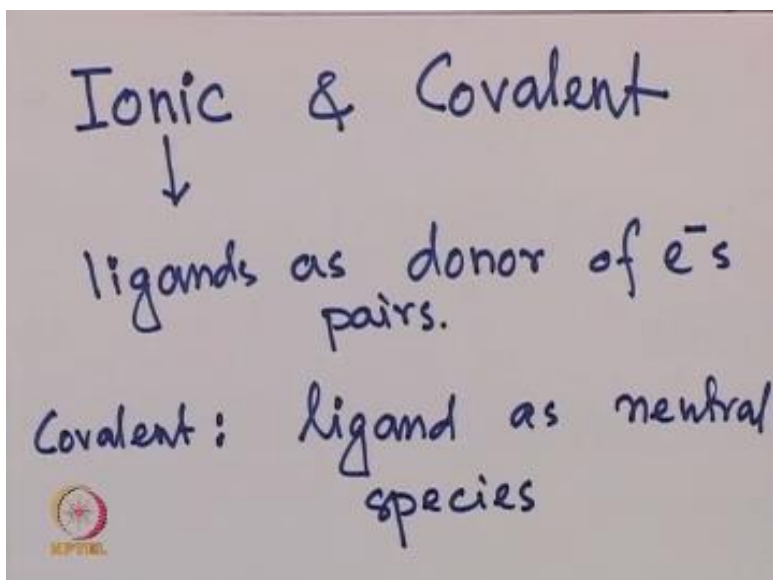 Ionic & Covalent
↓
ligands as donor of e⁻s
pairs.
Covalent: ligand as neutral
species
NPTEL